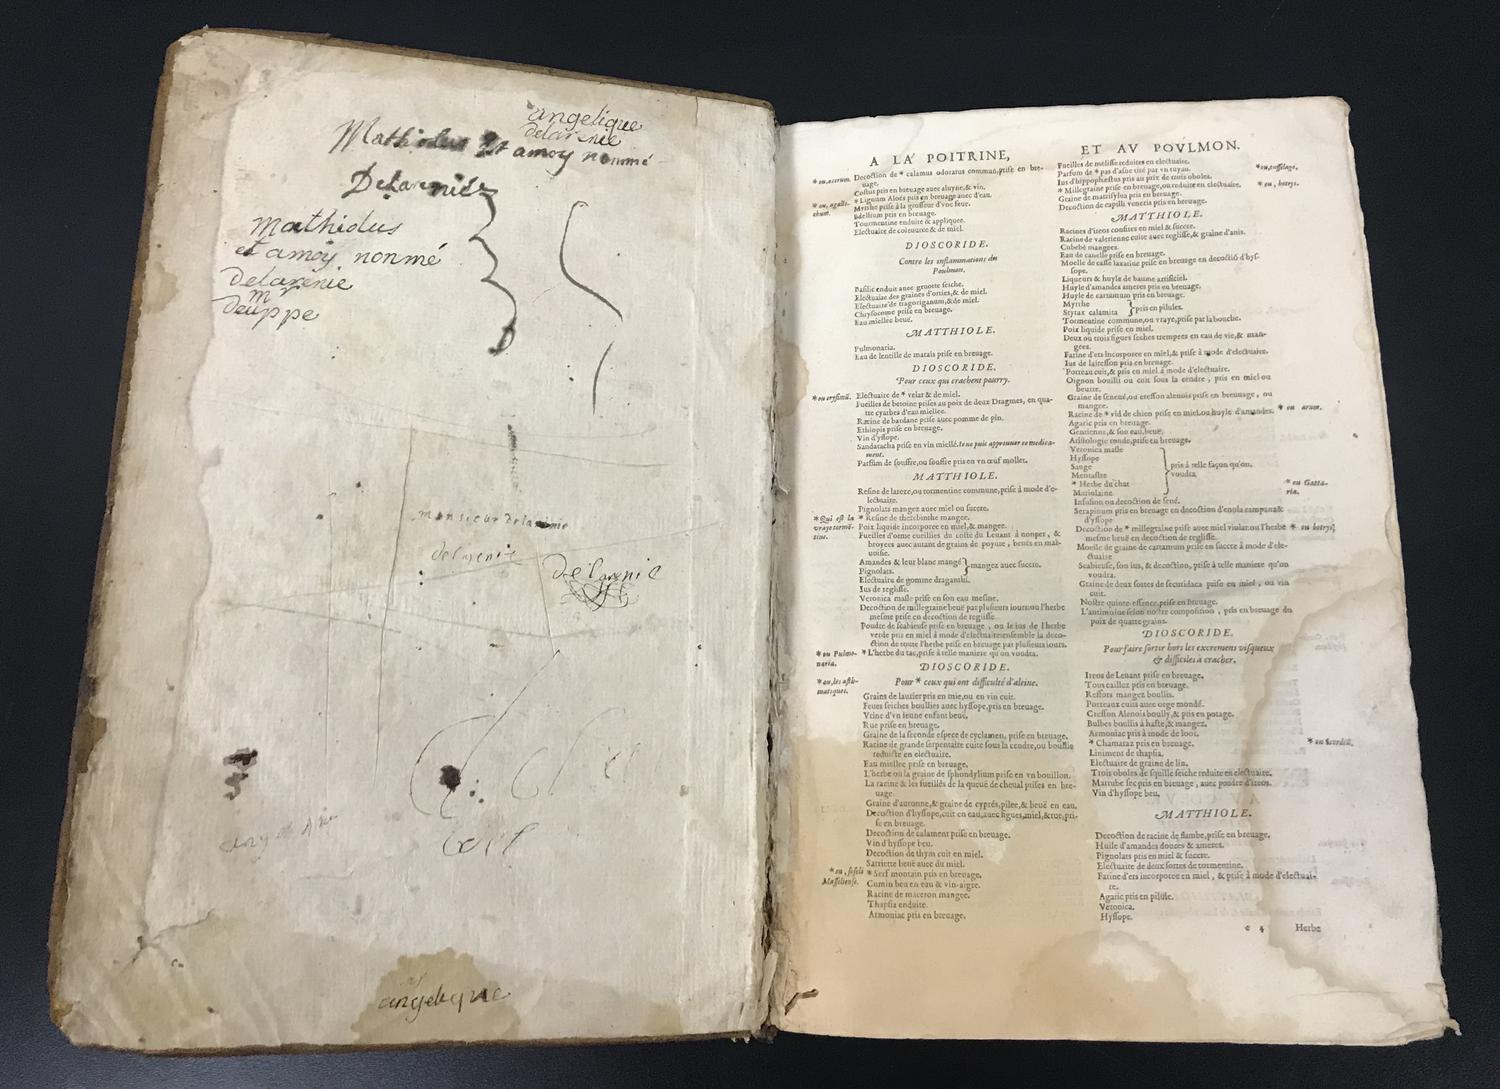 angelique
delarenie
Mathiolus Et amoy nommé
Delarenie
mathiolus
et amoy nonmé
delarenie
mr
deuppe
monsieur delarenie
delarenie
delarenie
angelique
A LA POITRINE,
* ou, acorum.
Decoction de * calamus odoratus commun, prise en bre-
uage.
Costus pris en breuage auec aluyne, & vin.
* ou, agallo-
chum.
* Lignum Aloes pris en breuage auec d'eau.
Myrrhe prise à la grosseur d'vne feue.
Bdellium pris en breuage.
Tourmentine enduite & appliquee.
Electuaire de couleuuree & de miel.
DIOSCORIDE.
Contre les inflammations du
Poulmon.
Basilic enduit auec griotte seiche.
Electuaire des graines d'orties, & de miel.
Electuaire de tragoriganum, & de miel.
Chrysocome prise en breuage.
Eau miellee beuë.
MATTHIOLE.
Pulmonaria.
Eau de lentille de marais prise en breuage.
DIOSCORIDE.
Pour ceux qui crachent pourry.
* ou erysimū.
Electuaire de * velar & de miel.
Fueilles de betoine prises au poix de deux Dragmes, en qua-
tre cyathes d'eau miellee.
Racine de bardane prise auec pomme de pin.
Ethiopis prise en breuage.
Vin d'yssope.
Sandaracha prise en vin miellé. Ie ne puis approuuer ce medica-
ment.
Parfum de souffre, ou souffre pris en vn œuf mollet.
MATTHIOLE.
Resine de lareze, ou tormentine commune, prise à mode d'e-
lectuaire.
Pignolats mangez auec miel ou succre.
* Qui est la
vraye termé-
tine.
* Resine de therebinthe mangee.
Poix liquide incorporee en miel, & mangee.
Fueilles d'orme cueillies du costé du Leuant à nonper, &
broyees auec autant de grains de poyure, beuës en mal-
uoisie.
Amandes & leur blanc mangé
Pignolats.
} mangez auec succre.
Electuaire de gomme draganthi.
Ius de reglisse.
Veronica masle prise en son eau mesme.
Decoction de millegraine beuë par plusieurs iours: ou l'herbe
mesme prise en decoction de reglisse.
Poudre de scabieuse prise en breuage, ou le ius de l'herbe
verde pris en miel à mode d'electuaire: ensemble la deco-
ction de toute l'herbe prise en breuage par plusieurs iours.
* ou Pulmo-
naria.
* L'herbe du tac, prise à telle maniere qu'on voudra.
DIOSCORIDE.
* ou, les asth-
matiques.
Pour * ceux qui ont difficulté d'aleine.
Grains de laurier pris en mie, ou en vin cuit.
Feues seiches boullies auec hyssope, pris en breuage.
Vrine d'vn ieune enfant beuë.
Rue prise en breuage.
Graine de la seconde espece de cyclamen, prise en breuage.
Racine de grande serpentaire cuite sous la cendre, ou boullie
reduicte en electuaire.
Eau miellee prise en breuage.
L'herbe ou la graine de sphondylium prise en vn bouillon.
La racine & les fueilles de la queuë de cheual prises en bre-
uage.
Graine d'auronne, & graine de cyprés, pilee, & beuë en eau.
Decoction d'hyssope, cuit en eau, auec figues, miel, & rue, pri-
se en breuage.
Decoction de calament prise en breuage.
Vin d'hyssope beu.
Decoction de thym cuit en miel.
Sarriette beuë auec du miel.
* ou, seseli
Massiliense.
* Serf montain pris en breuage.
Cumin beu en eau & vin-aigre.
Racine de maceron mangee.
Thapsia enduite.
Armoniac pris en breuage.
ET AV POVLMON.
Fueilles de melisse reduites en electuaire.
Parfum de * pas d'asne tiré par vn tuyau.
* ou, tussilago.
Ius d'hippophæstus pris au poix de trois oboles.
* Millegraine prise en breuage, ou reduite en electuaire.
* ou, botrys.
Graine de marrisylua pris en breuage.
Decoction de capilli veneris pris en breuage.
MATTHIOLE.
Racines d'ireos confites en miel & succre.
Racine de valeriene cuite auec reglisse, & graine d'anis.
Cubebé mangees.
Eau de canelle prise en breuage.
Moelle de casse laxatiue prise en breuage en decoctiō d'hys-
sope.
Liqueurs & huyle de baume artificiel.
Huyle d'amandes ameres pris en breuage.
Huyle de cartamum pris en breuage.
Myrrhe
Styrax calamita
} pris en pilules.
Tormentine commune, ou vraye, prise par la bouche.
Poix liquide prise en miel.
Deux ou trois figues seches trempees en eau de vie, & man-
gees.
Farine d'ers incorporee en miel, & prise à mode d'electuaire.
Ius de laitesson pris en breuage.
Porreau cuit, & pris en miel à mode d'electuaire.
Oignon bouilli ou cuit sous la cendre, pris en miel ou
beurre.
Graine de seneué, ou cresson alenois prise en breuuage, ou
mangee.
Racine de * vid de chien prise en miel, ou huyle d'amandes.
* ou arum.
Agaric pris en breuage.
Gentienne, & son eau, beuë.
Aristologie ronde, prise en breuage.
Veronica masle
Hyssope
Sauge
Mentastre
* Herbe du chat
Mariolaine
} pris à telle façon qu'on
voudra.
* ou Gatta-
ria.
Infusion ou decoction de sené.
Serapinum pris en breuage en decoction d'enola campana &
d'yssope
Decoction de * millegraine prise auec miel violat: ou l'herbe
mesme beuë en decoction de reglisse.
* ou botrys.
Moelle de graine de cartamum prise en succre à mode d'ele-
ctuaire
Scabieuse, son ius, & decoction, prise à telle maniere qu'on
voudra.
Graine de deux sortes de securidaca prise en miel, ou vin
cuit.
Nostre quinte-essence, prise en breuage.
L'antimoine selon nostre composition, pris en breuage du
poix de quatre grains.
DIOSCORIDE.
Pour faire sortir hors les excremens visqueux
& difficiles à cracher.
Ireos de Leuant prise en breuage.
Tous caillez pris en breuage.
Reffors mangez boullis.
Porreaux cuits auec orge mondé.
Cresson Alenois boully, & pris en potage.
Bulbes boullis à haste, & mangez.
Armoniac pris à mode de looc.
* Chamaraz pris en breuage.
* ou Scordiū.
Liniment de thapsia.
Electuaire de graine de lin.
Trois oboles de squille seiche reduite en electuaire.
Marrube sec pris en breuage, auec poudre d'ireos.
Vin d'hyssope beu.
MATTHIOLE.
Decoction de racine de flambe, prise en breuage.
Huile d'amandes douces & ameres.
Pignolats pris en miel & succre.
Electuaire de deux sortes de tormentine.
Farine d'ers incorporee en miel, & prise à mode d'electuai-
re.
Agaric pris en pilule.
Veronica.
Hyssope.
e 4 Herbe